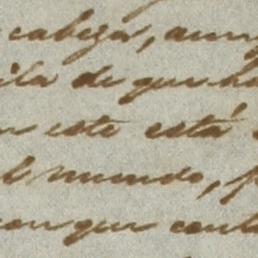 cabeza, aun
ila de que ha
este está
el mundo, p
con que cont